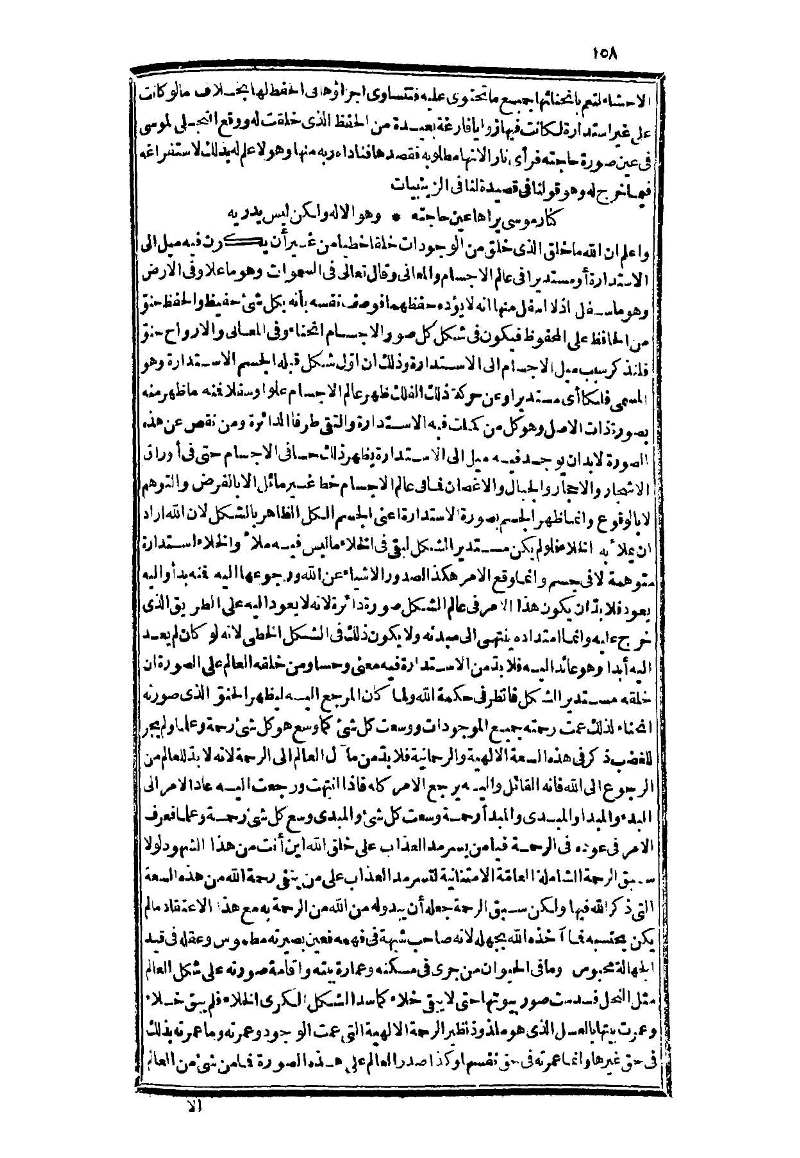 ١٥٨
الاحشاء لتعم بانحنائها جميع ما تحتوى عليه فتتساوى اجزاؤها فى الحفظ لها بخلاف مالو كانت
على غير استدارة لكانت فيها زوايا فارغة بعيدة من الحفظ الذى خلقت له ووقع التجلى لموسى
فى عين صورة حاجته فرأى نارا لانها مطلوبه فقصدها فناداه ربه منها وهو لا علم له بذلك لاستفراغه
فيما خرج له وهو قولنا فى قصيدة لنا فى الزينبيات
كنار موسى يراها عين حاجته * وهو الاله ولكن ليس يدريه
واعلم ان الله ما خلق الذى خلق من الموجودات خلقا خطيا من غير أن يكون فيه ميل الى
الاستدارة أو مستديرا فى عالم الاجسام والمعانى وقال تعالى فى السموات وهو ما علا وفى الارض
وهو ما سفل اذ لا اسفل منها انه لا يؤده حفظهما فوصف نفسه بأنه بكل شئ حفيظ والحفظ حنو
من الحافظ على المحفوظ فيكون فى شكل كل صور الاجسام انحناء وفى المعانى والارواح حنو
فلنذكر سبب ميل الاجسام الى الاستدارة وذلك ان اوّل شكل قبله الجسم الاستدارة وهو
المسمى فلكا أى مستديرا وعن حركة ذلك الفلك ظهر عالم الاجسام علوا وسفلا فمنه ما ظهر منه
بصورة ذات الاصل وهو كل من كملت فيه الاستدارة والتقى طرفا الدائرة ومن نقص عن هذه
الصورة لابد ان يوجد فيه ميل الى الاستدارة يظهر ذلك حسا فى الاجسام حتى فى أوراق
الاشجار والاحجار والجبال والاغصان فما فى عالم الاجسام خط غير مائل الا بالفرض والتوهم
لا بالوقوع وانما ظهر الجسم بصورة الاستدارة اعنى الجسم الكل الظاهر بالشكل لان الله اراد
ان يملأ به الخلاء فلو لم يكن مستدير الشكل لبقى فى الخلاء ما ليس فيه ملأ والخلاء استدارة
متوهمة لا فى جسم وانما وقع الامر هكذا لصدور الاشياء عن الله ورجوعها اليه فمنه بدأ واليه
يعود فلا بدّ ان يكون هذا الامر فى عالم الشكل صورة دائرة لانه لا يعود اليه على الطريق الذى
خرج عليه وانما امتداده ينتهى الى مبدئه ولا يكون ذلك فى الشكل الخطى لانه لو كان لم يعد
اليه أبدا وهو عائد اليه فلا بدّ من الاستدارة فيه معنى وحسا ومن خلقه العالم على الصورة ان
خلقه مستدير الشكل فانظر فى حكمة الله ولما كان المرجع اليه ليظهر الحنو الذى صورته
انحناء لذلك عمت رحمته جميع الموجودات ووسعت كل شئ كما وسع هو كل شئ رحمة وعلما ولم يجر
للغضب ذكر فى هذه السعة الالهية والرحمانية فلا بدّ من مآل العالم الى الرحمة لانه لا بد للعالم من
الرجوع الى الله فانه القائل واليه يرجع الامر كله فاذا انتهت ورجعت اليه عاد الامر الى
البدء والمبدا والمبدى والمبدأ رحمة وسعت كل شئ والمبدى وسع كل شئ رحمة وعلما فعرف
الامر فى عوده فى الرحمة فيا من يسرمد العذاب على خلق الله اين أنت من هذا الشهود لولا
سبق الرحمة الشاملة العامة الامتنانية لتسرمد العذاب على من ينفى رحمة الله من هذه السعة
التى ذكر الله فيها ولكن سبق الرحمة جعله أن يبدو له من الله من الرحمة به مع هذا الاعتقاد مالم
يكن يحتسبه فما آخذه الله بجهله لانه صاحب شبهة فى فهمه فعين بصيرته مطموس وعقله فى قيد
الجهالة محبوس وما فى الحيوان من جرى فى مسكنه وعمارة بيته واقامة صورته على شكل العالم
مثل النحل فسدست صور بيوتها حتى لا يبقى خلاء كما سد الشكل الكرى الخلاء فلم يبق خلاء
وعمرت بيتها بالعسل الذى هو ملذوذ نظير الرحمة الالهية التى عمت الوجود وعمرته وما عمرته بذلك
فى حق غيرها وانما عمرته فى حق نفسها وكذا صدر العالم على هذه الصورة فما من شئ من العالم
الا